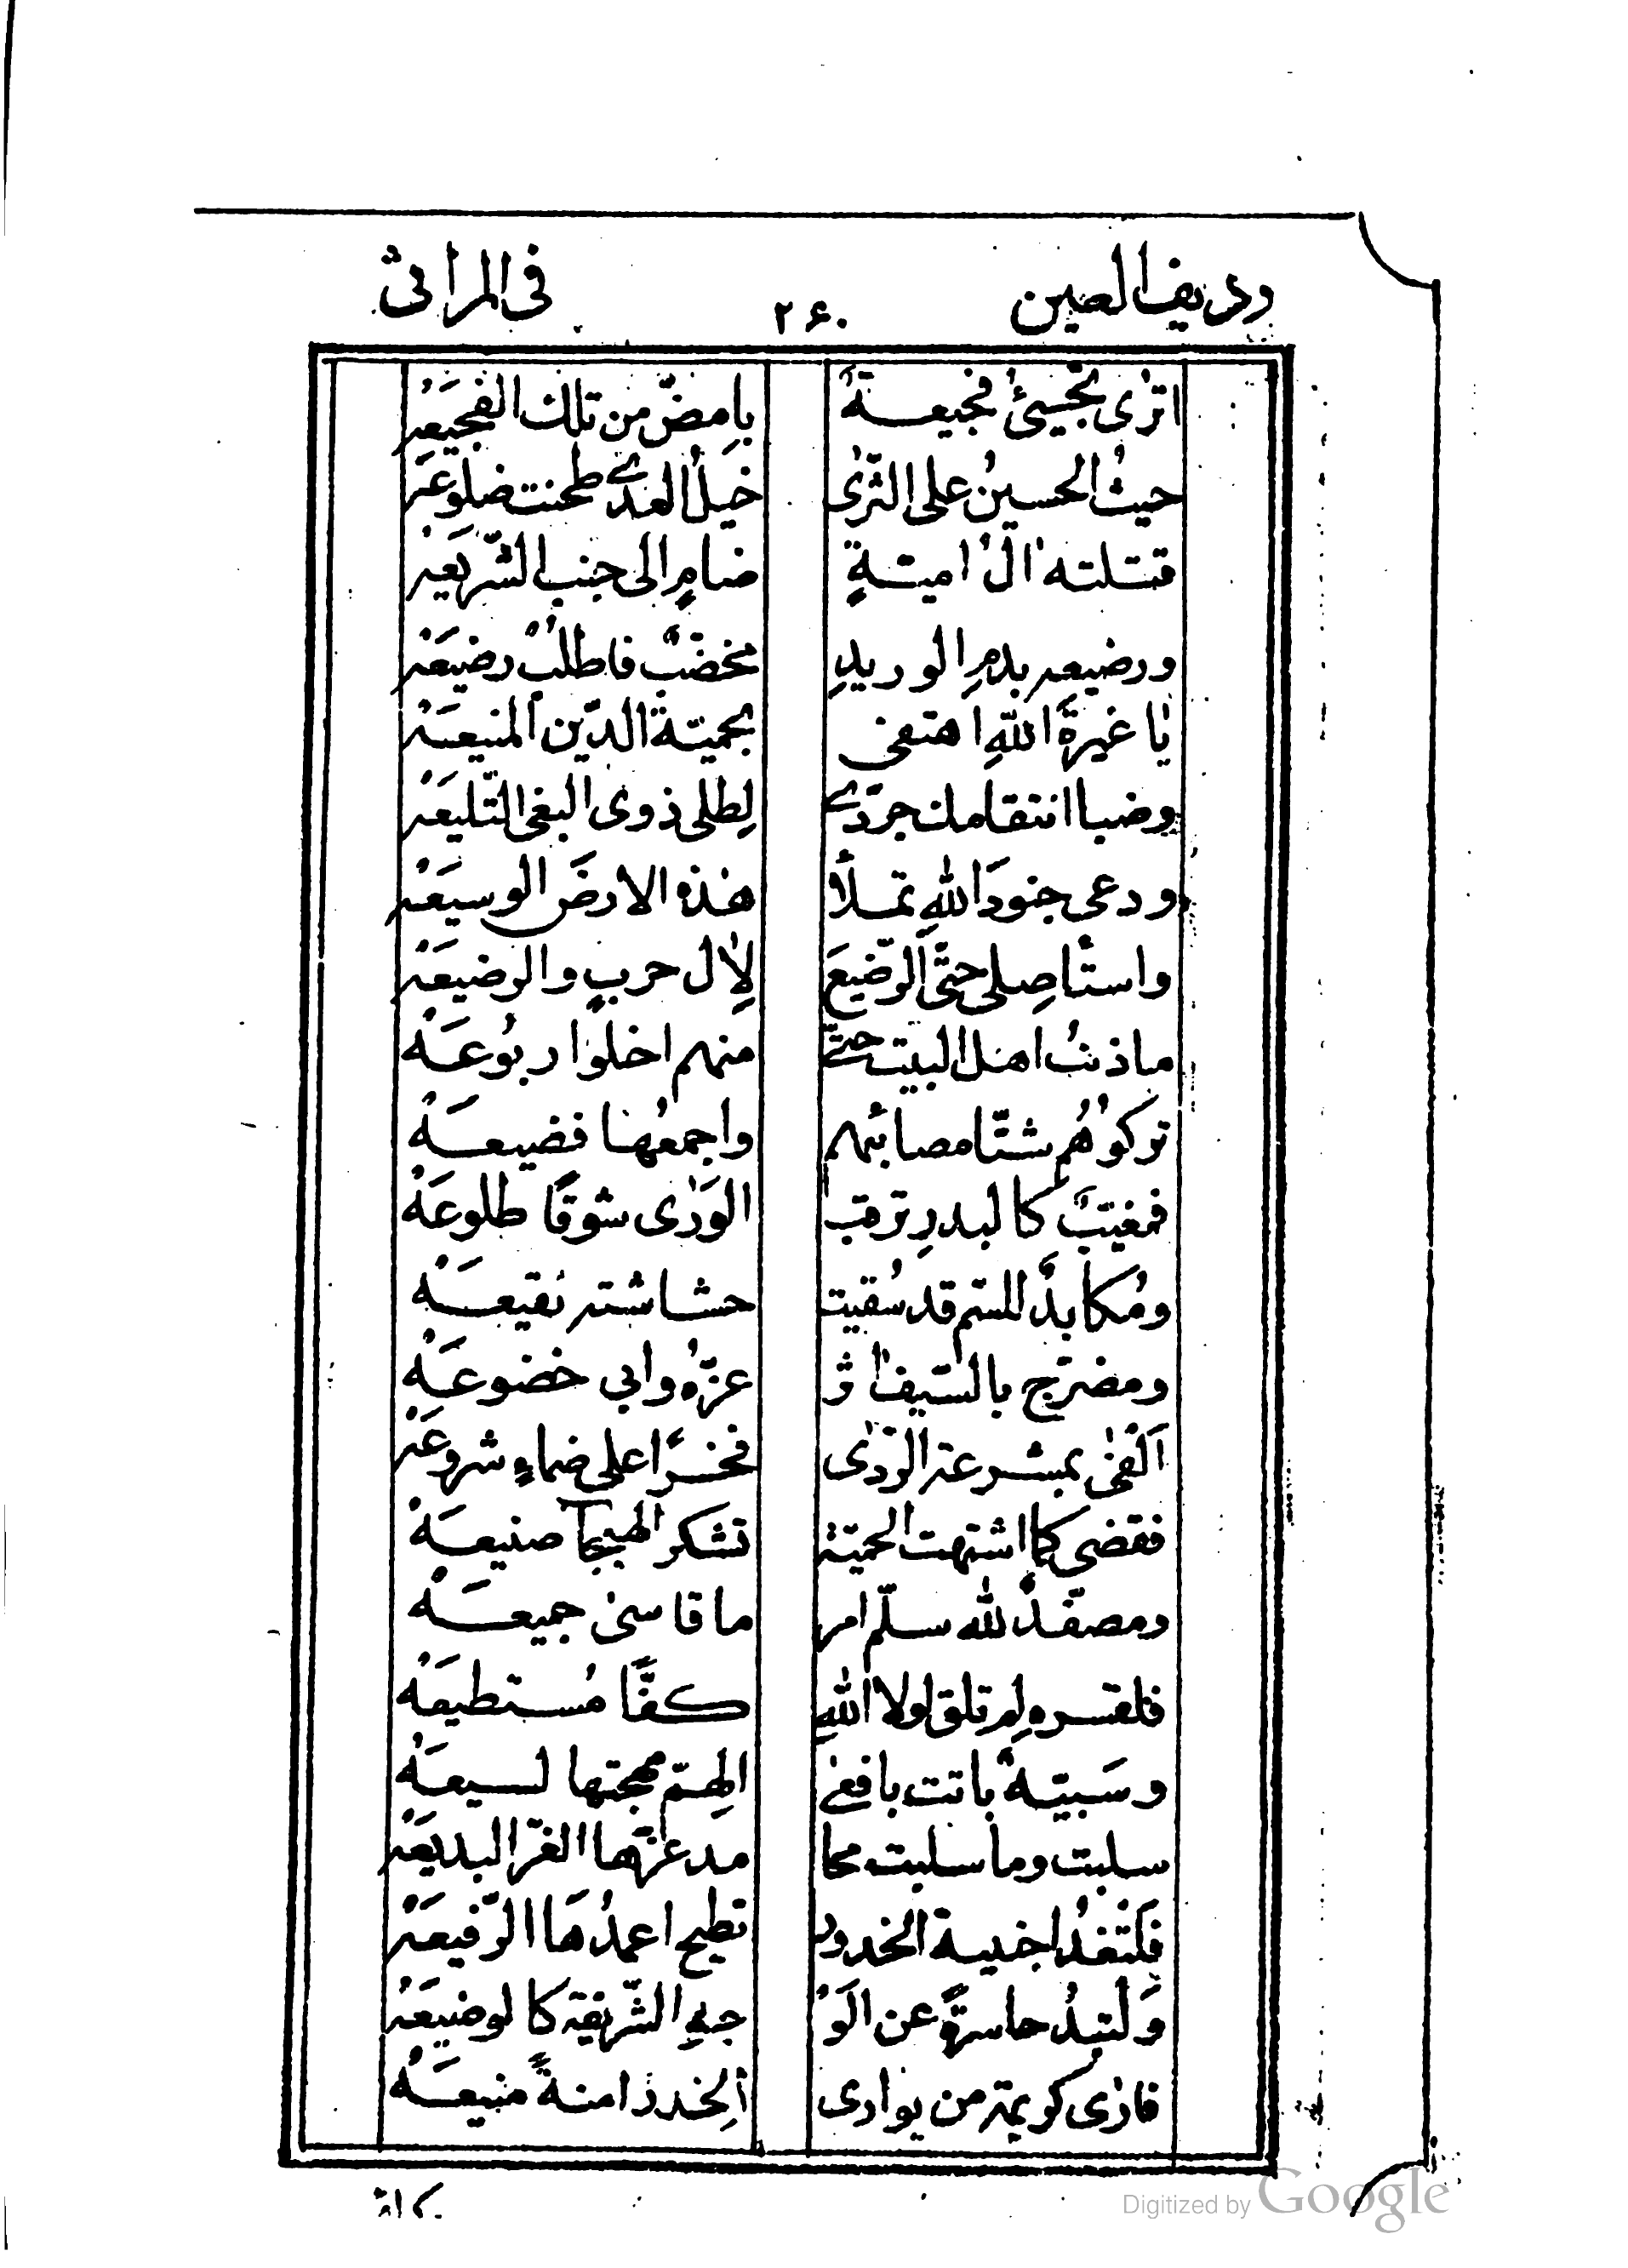 ورديف العين ۲۶۰ فى المراثى
اترٰى تجيئُ فجيعةٌ بامضّ من تلك الفجيعه
حيثُ الحسينُ على الثّرٰى خيلُ العدٰى طحنت ضلوعه
قتلته اٰلُ اميّةٍ ضامٍ الى جنب الشّريعه
ورضيعه بدمِ الوريدِ مخضّبٌ فاطلُبْ رضيعَه
يٰا غيرةَ اللهِ اهتفى بحميّة الدّين المنيعَه
وضبا انتقامك جرّدى لِطلى ذوى البغى التّليعَه
ودعى جنودَ اللهِ تملأ هٰذه الارضَ الوسيعَه
واستأصِلى حتّى الرّضيعَ لِاٰل حربٍ والرضيعَه
ماذنبُ اهل البيت حتّى منهم اخلوا ربُوعَهْ
تركوُهُم شتّا مصائبهم واجمعُها فضيعَهْ
فمغيّبٌ كالبدرِ ترقب الوَرٰى شوقًا طلوعَهْ
ومُكابدٌ للسّم قد سُقيت حشاشته نقيعَهْ
ومضرّج بالسّيف اٰثر عزّهُ وابى خضوعَهْ
اَلْفٰى بمشرعة الرّدٰى فخرًا على ضماءٍ شروعَه
فقضى كما اشتهت الحميّة تشكر الهيجا صنيعَهْ
ومصفّدٌ لله سلّم امر ما قاسى جميعَهْ
فلقسره لم تلق لولا اللهِ كفًّا مُستطيعَهْ
وسَبيّةٌ باتت بافعى الهمّ مهجتها لسيعَهْ
سلبت وما سلبت محا مد عزّها الغرّ البديعَه
فلتغدُ اخبية الخدور تطيح اعمدُهَا الرّفيعَهْ
وَلتبدُ حاسرةً عن الوَ جهِ الشّريفة كالوضيعَهْ
فارٰى كريمة من يوارى الخدر اٰمنةً منيعَهْ